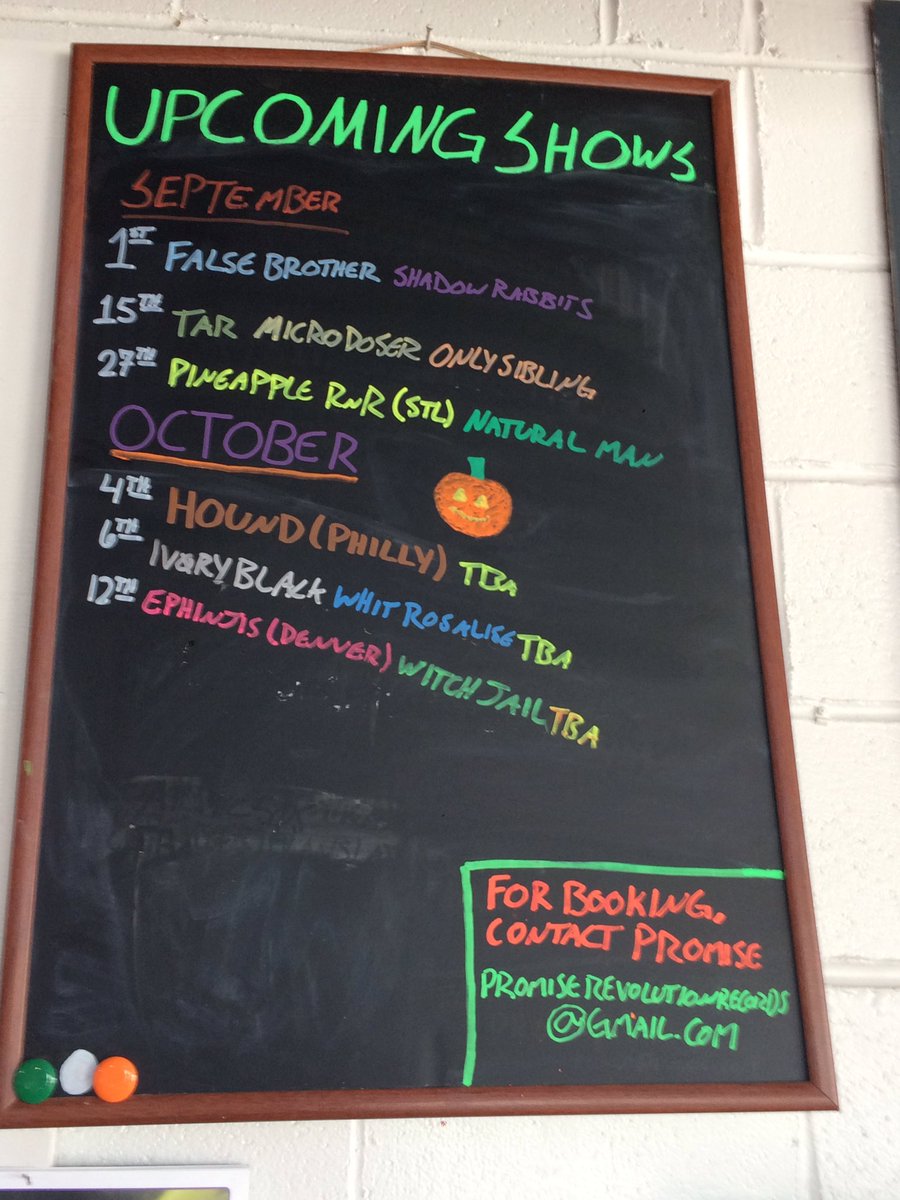 UPCOMING SHOWS
SEPTEMBER
1ST FALSE BROTHER SHADOW RABBITS
15TH TAR MICRODOSER ONLY SIBLING
27TH PINEAPPLE RNR (STL) NATURAL MAN
OCTOBER
4TH HOUND (PHILLY) TBA
6TH IVORY BLACK WHIT ROSALISE TBA
12TH EPHINJIS (DENVER) WITCH JAIL TBA
FOR BOOKING,
CONTACT PROMISE
PROMISEREVOLUTIONRECORDS
@GMAIL.COM